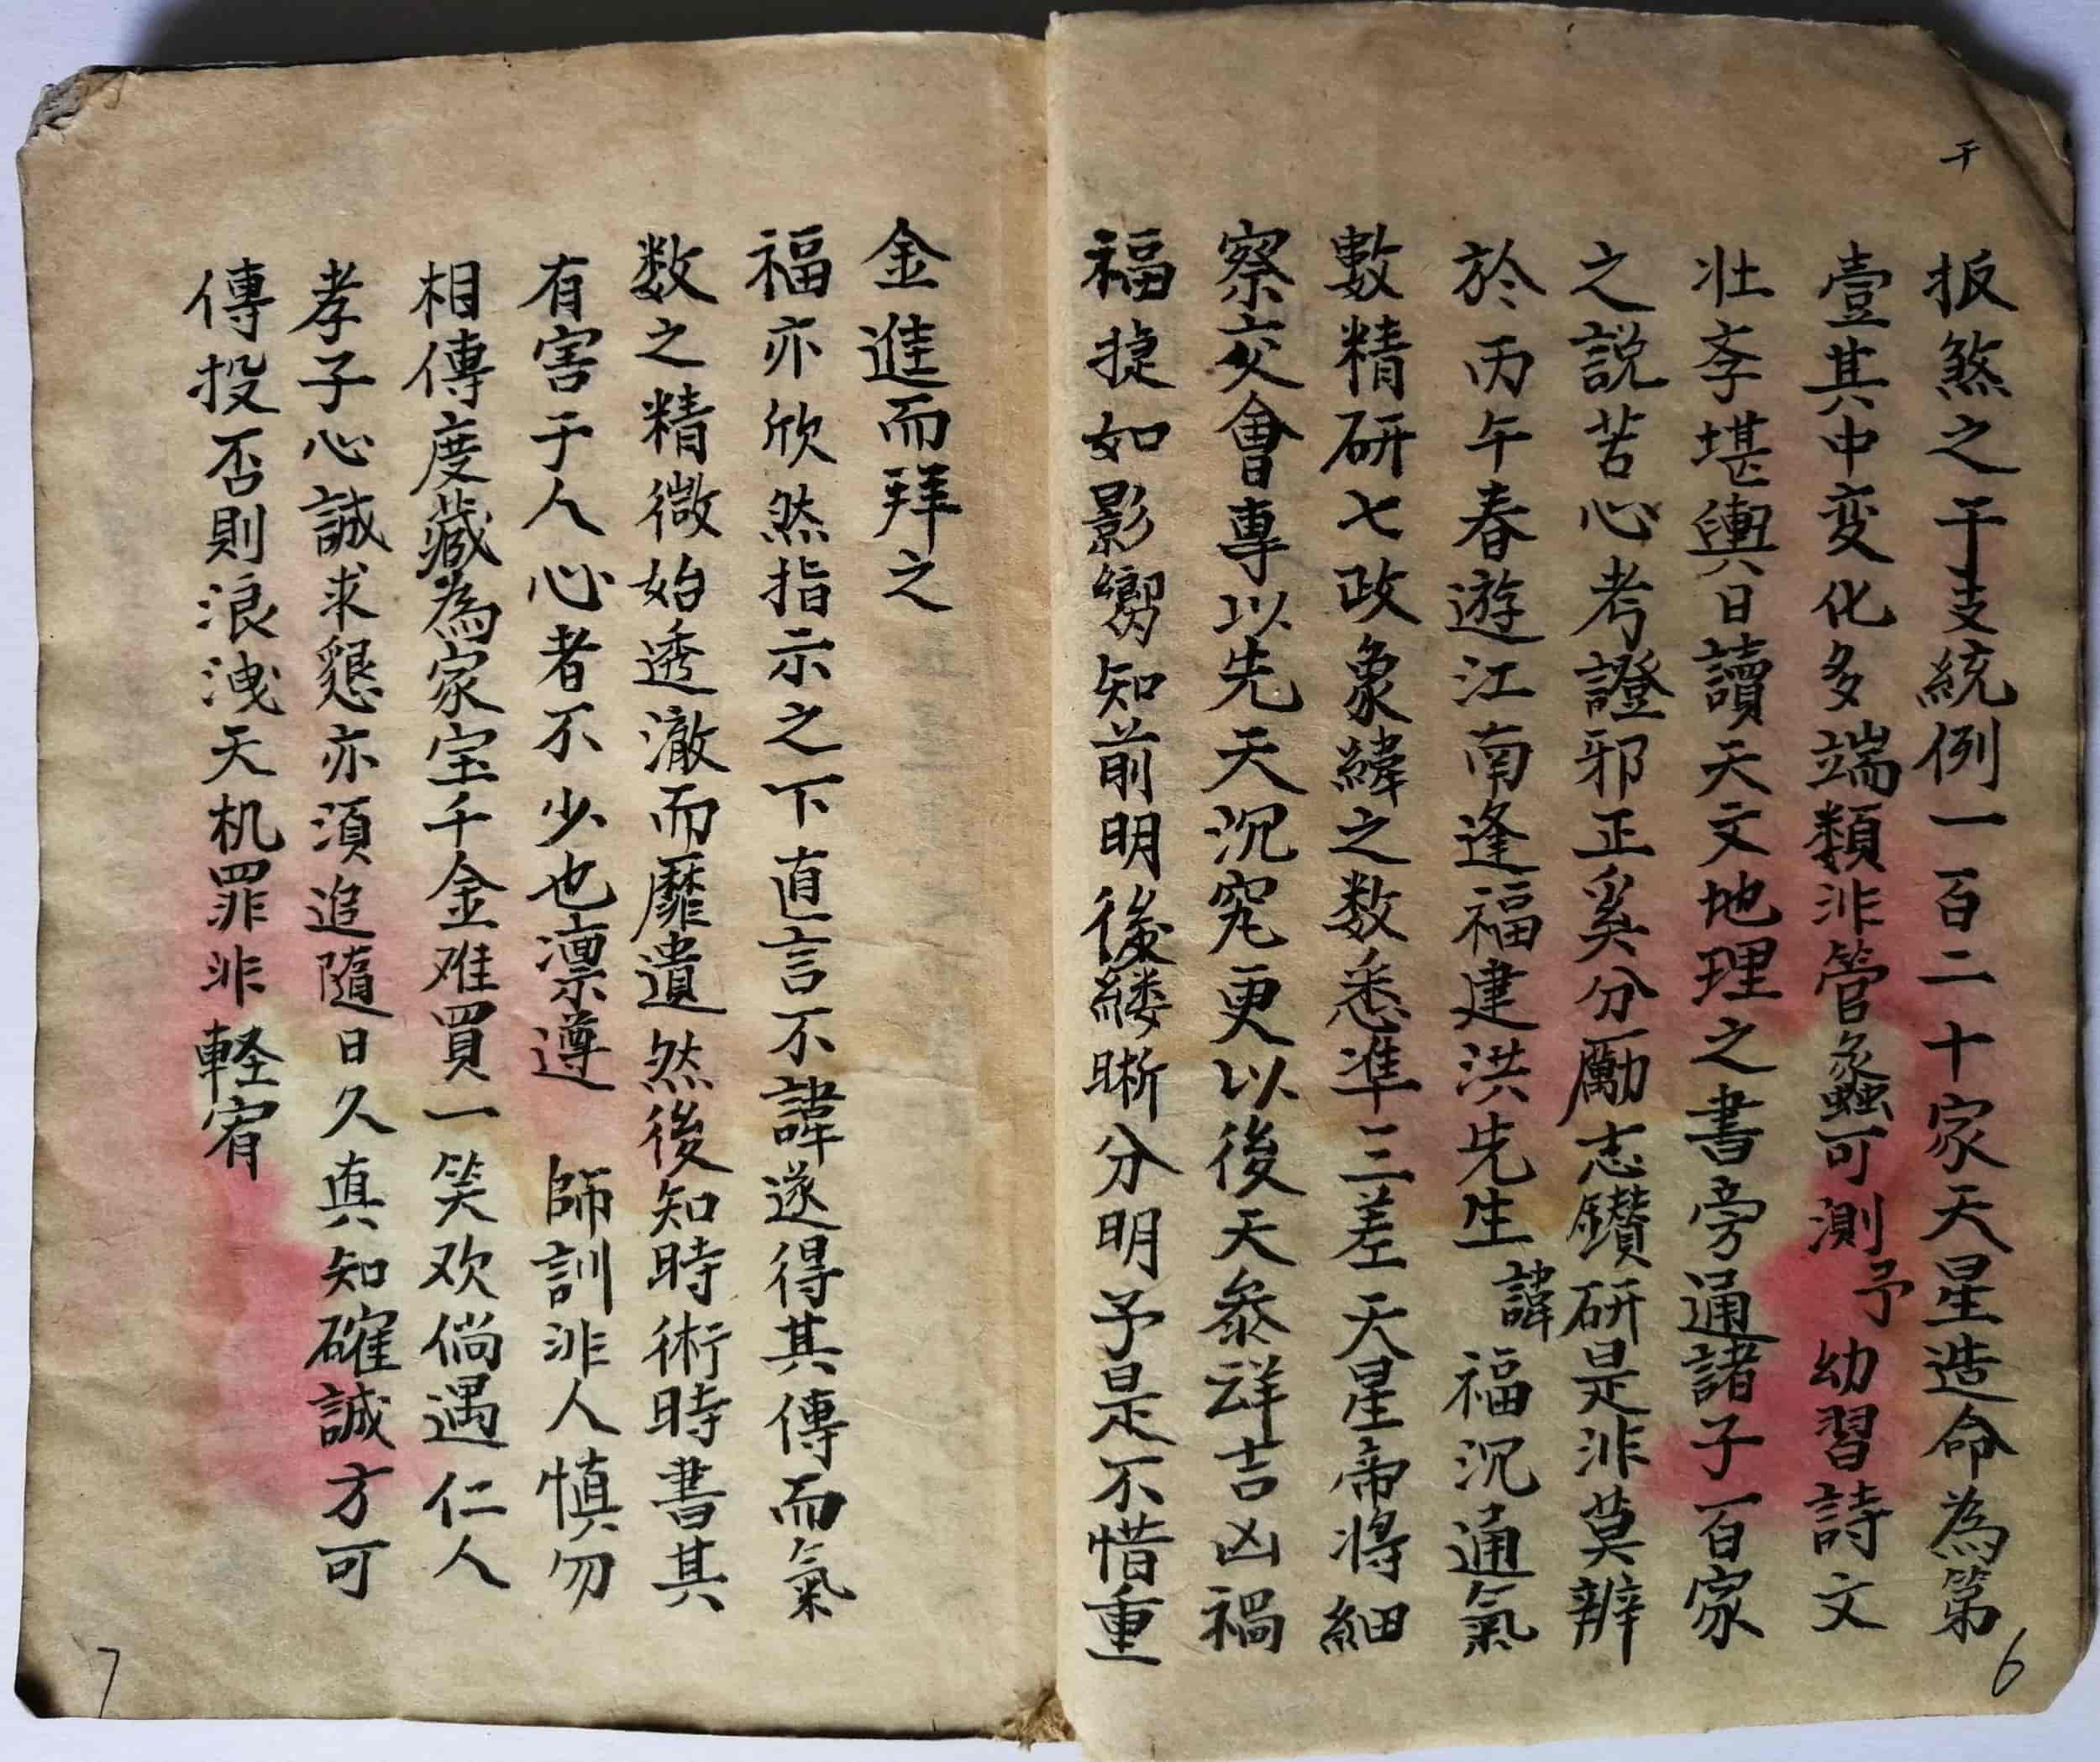 干
扳煞之干支統例一百二十家天星造命為第
壹其中变化多端類非管蠡可測予幼習詩文
壯斈堪輿日讀天文地理之書旁通諸子百家
之説苦心考證邪正奚分励志鑽研是非莫辨
於丙午春遊江南逢福建洪先生諱福沉通氣
數精研七政象緯之数悉準三差天星帝將細
察交會專以先天沉究更以後天叅詳吉凶禍
福捷如影嚮知前明後縷晰分明予是不惜重
6
金進而拜之
福亦欣然指示之下直言不諱遂得其傳而氣
数之精微始透澈而靡遺然後知時術時書其
有害于人心者不少也凛遵師訓非人慎勿
相傳度藏為家宝千金难買一笑欢倘遇仁人
孝子心誠求懇亦須追隨日久真知確誠方可
傳投否則浪洩天机罪非軽宥
7